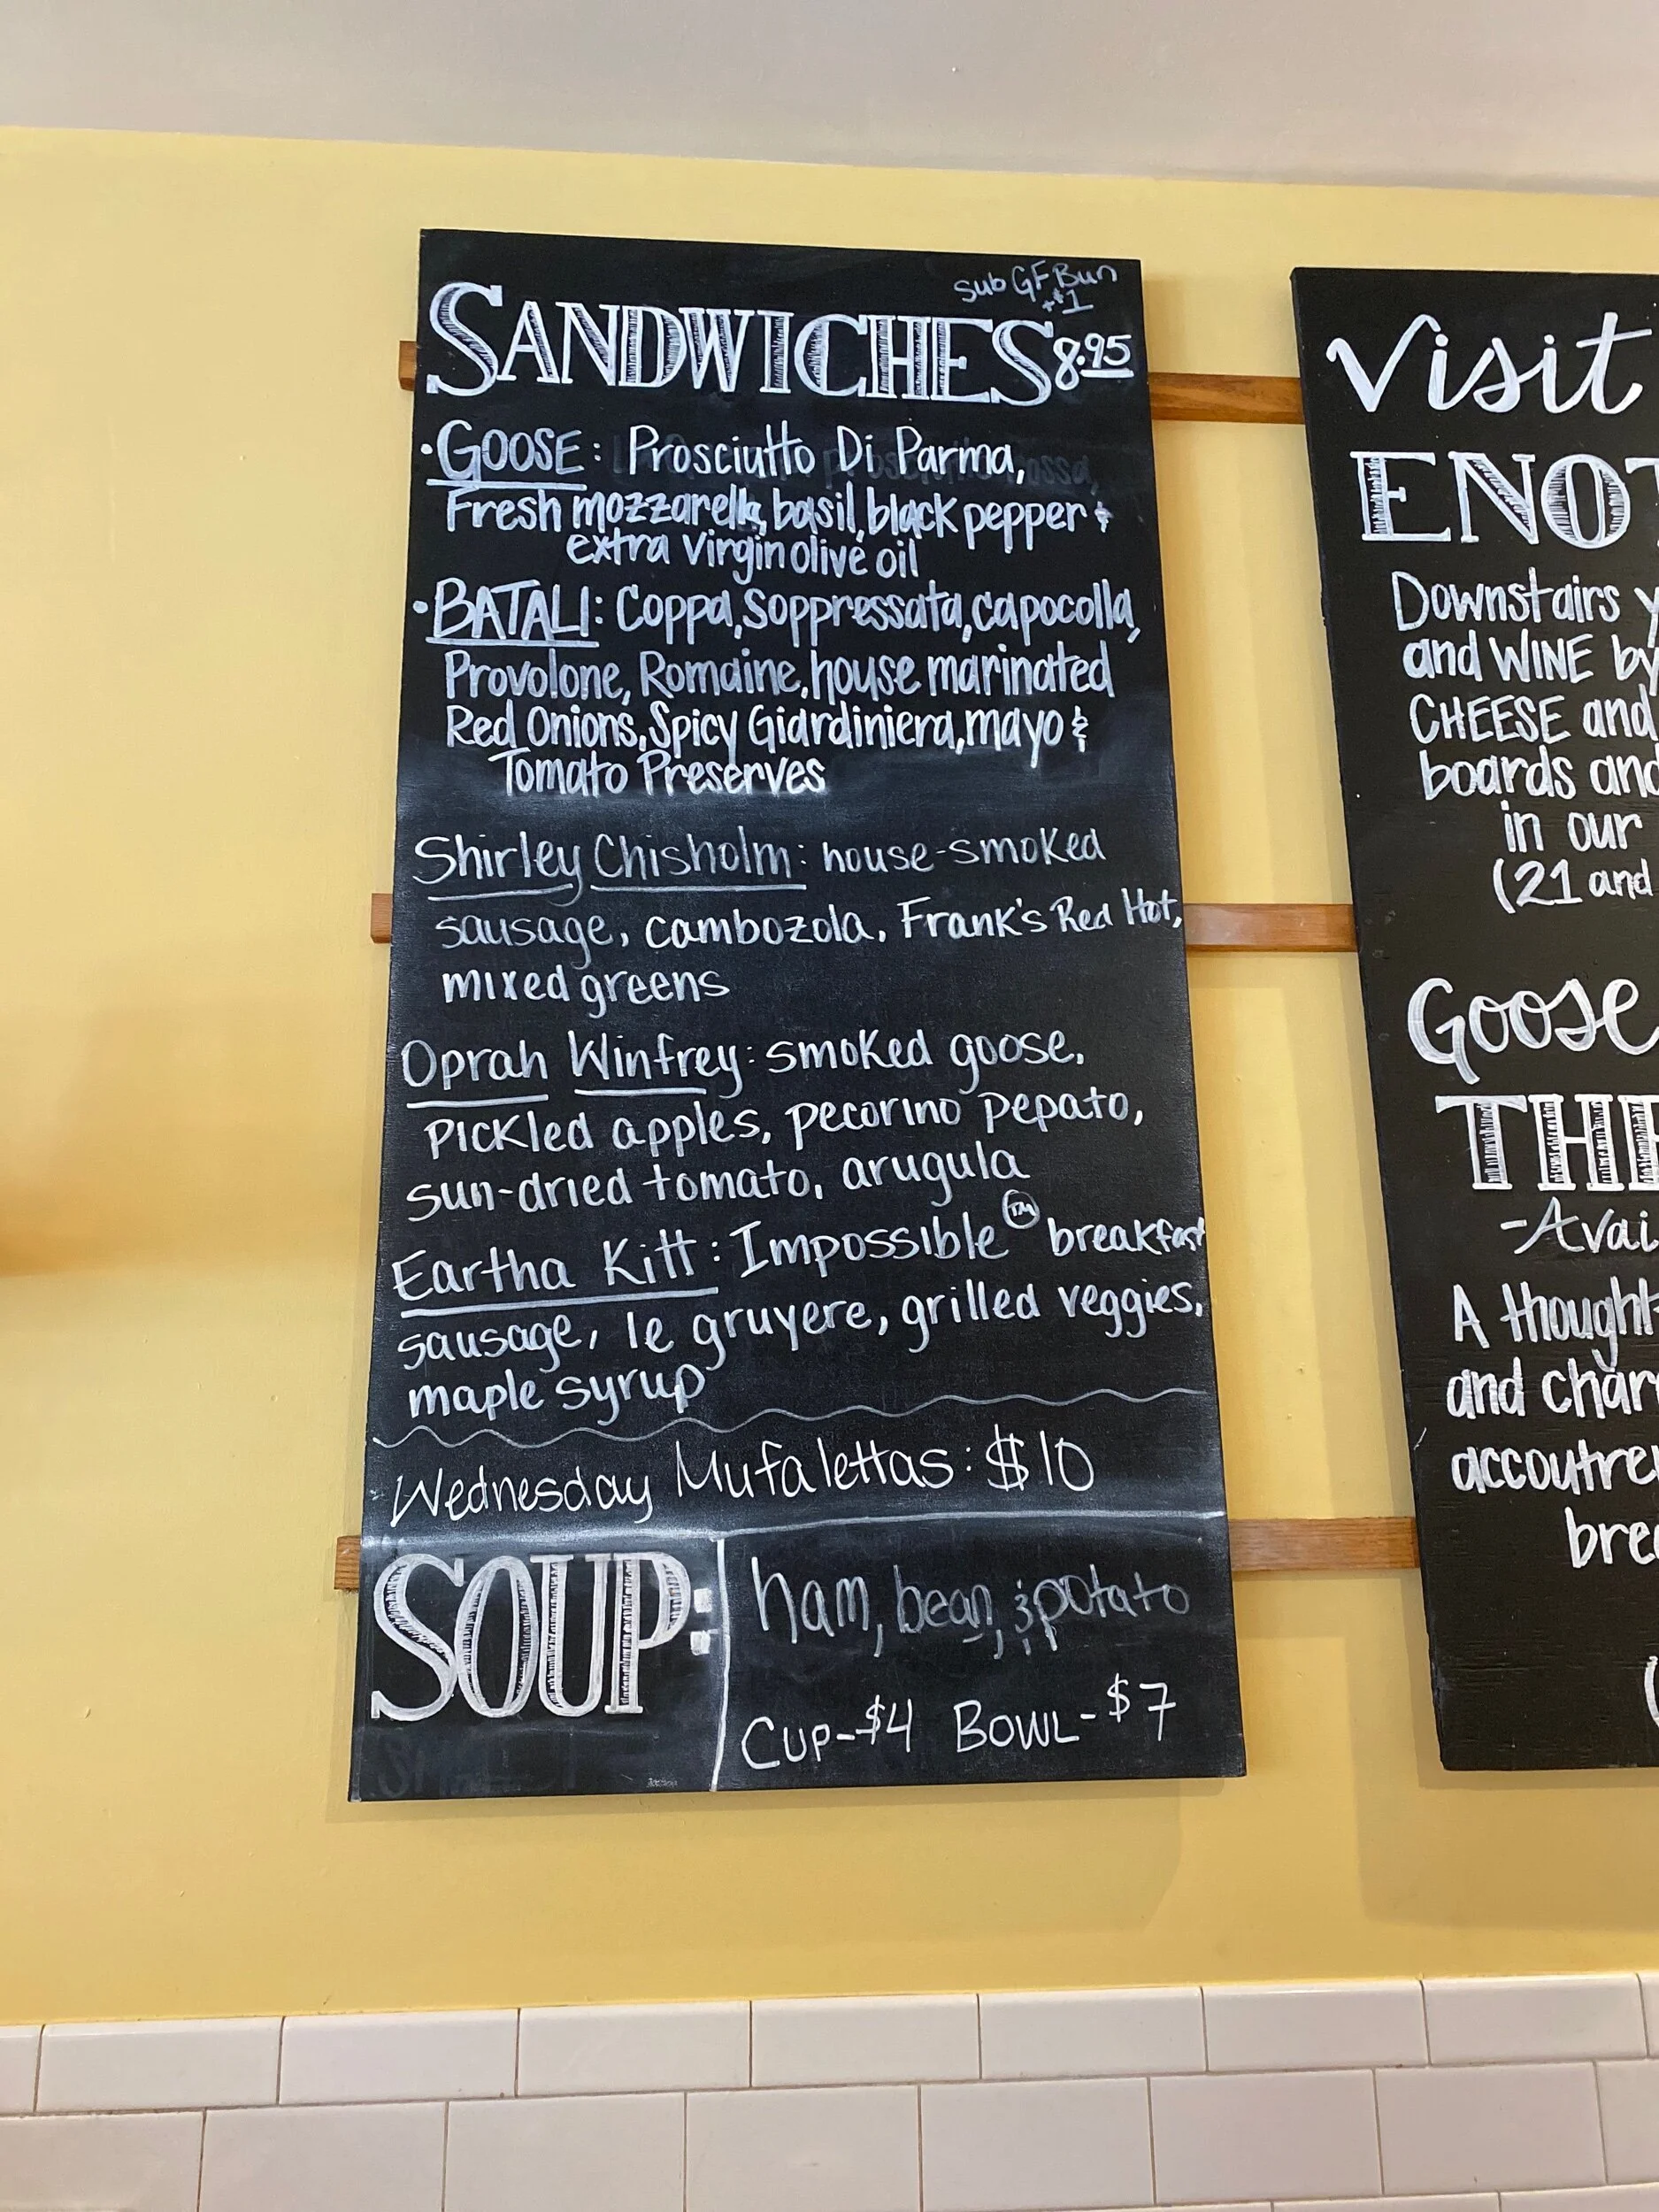 Sub GF Bun
+$1
SANDWICHES 8.95
• GOOSE: Prosciutto Di Parma,
Fresh mozzarella, basil, black pepper &
extra virgin olive oil
• BATALI: Coppa, Soppressata, capocolla,
Provolone, Romaine, house marinated
Red Onions, Spicy Giardiniera, mayo &
Tomato Preserves
Shirley Chisholm: house-smoked
sausage, cambozola, Frank's Red Hot,
mixed greens
Oprah Winfrey: smoked goose,
pickled apples, pecorino pepato,
sun-dried tomato, arugula
Eartha Kitt: Impossible ™ breakfast
sausage, le gruyere, grilled veggies,
maple syrup
Wednesday Mufalettas: $10
SOUP: ham, bean, & potato
Cup-$4 Bowl-$7
Visit
ENOT
Downstairs y
and WINE by
CHEESE and
boards and
in our
(21 and
Goose
THE
-Avai
A thought
and char
accoutre
brea
(